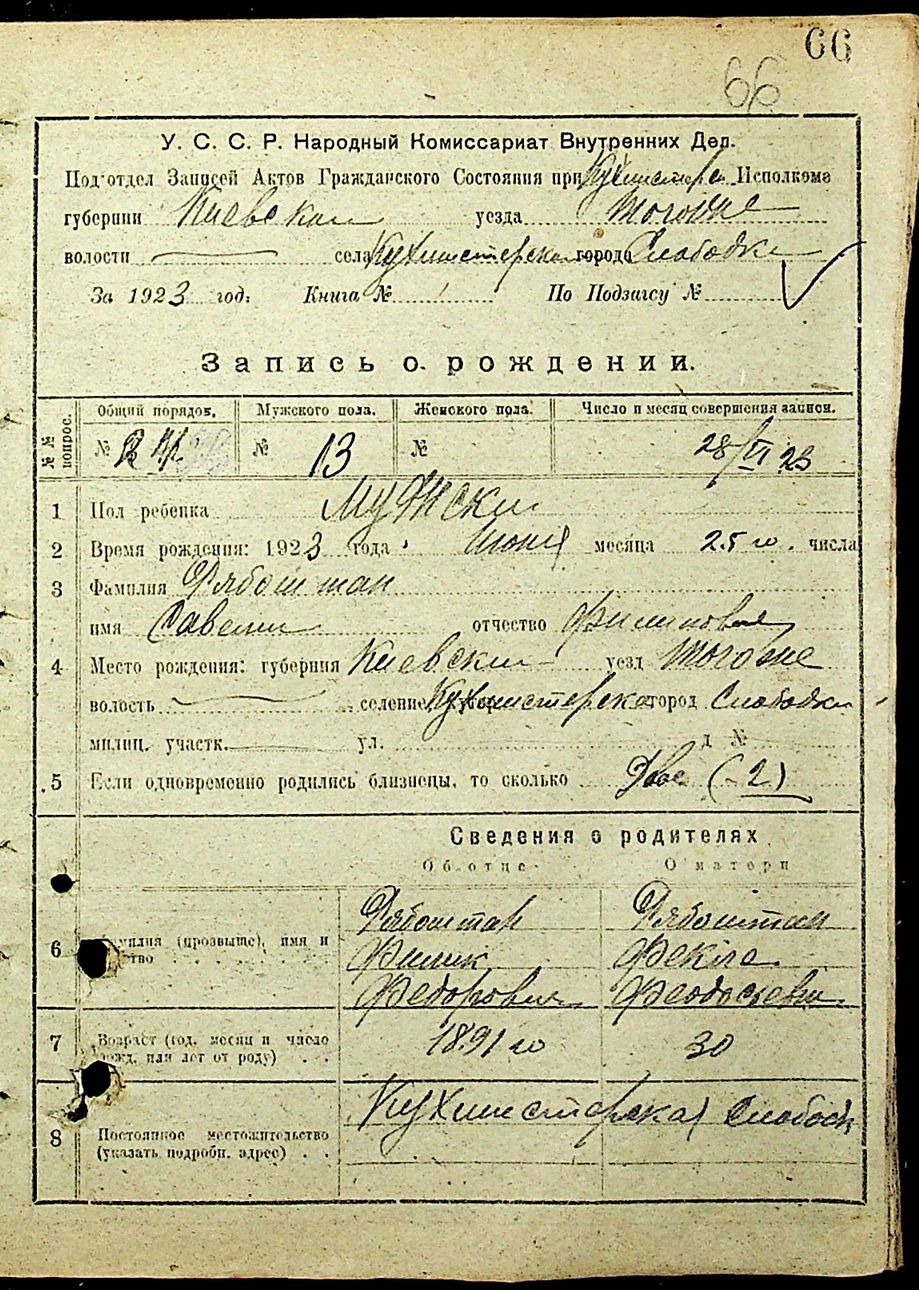 66
66
У. С. С. Р. Народный Комиссариат Внутренних Дел.
Подотдел Записей Актов Гражданского Состояния при Исполкоме
губернии Киевская уезда тогоже
волости села Кухмистерская город Слободка
За 1923 год. Книга № По Подзагсу №
Запись о рождении.
№№ вопрос. Общий порядов. Мужского пола. Женского пола. Число и месяц совершения записи.
№ № 13 № 28/VI 23
1 Пол ребенка Мужски
2 Время рождения: 1923 года Июня месяца 25 го. числа
3 Фамилия Рябоштан
имя Савелии отчество Филипович
4 Место рождения: губерния Киевски уезд тогоже
волость селение Кухмистерска город Слободка
милиц. участк. ул. д №
5 Если одновременно родились близнецы, то сколько Двое (2)
Сведения о родителях
Об отце О матери
Рябоштан Рябоштан
6 Фамилия (прозвище), имя и Филип Фекла
отчество Федорович Феодосьевна
7 Возраст (год, месяц и число 1891 го 30
рожд. или лет от роду)
Кухмистерская Слободк
8 Постоянное местожительство
(указать подробн. адрес)